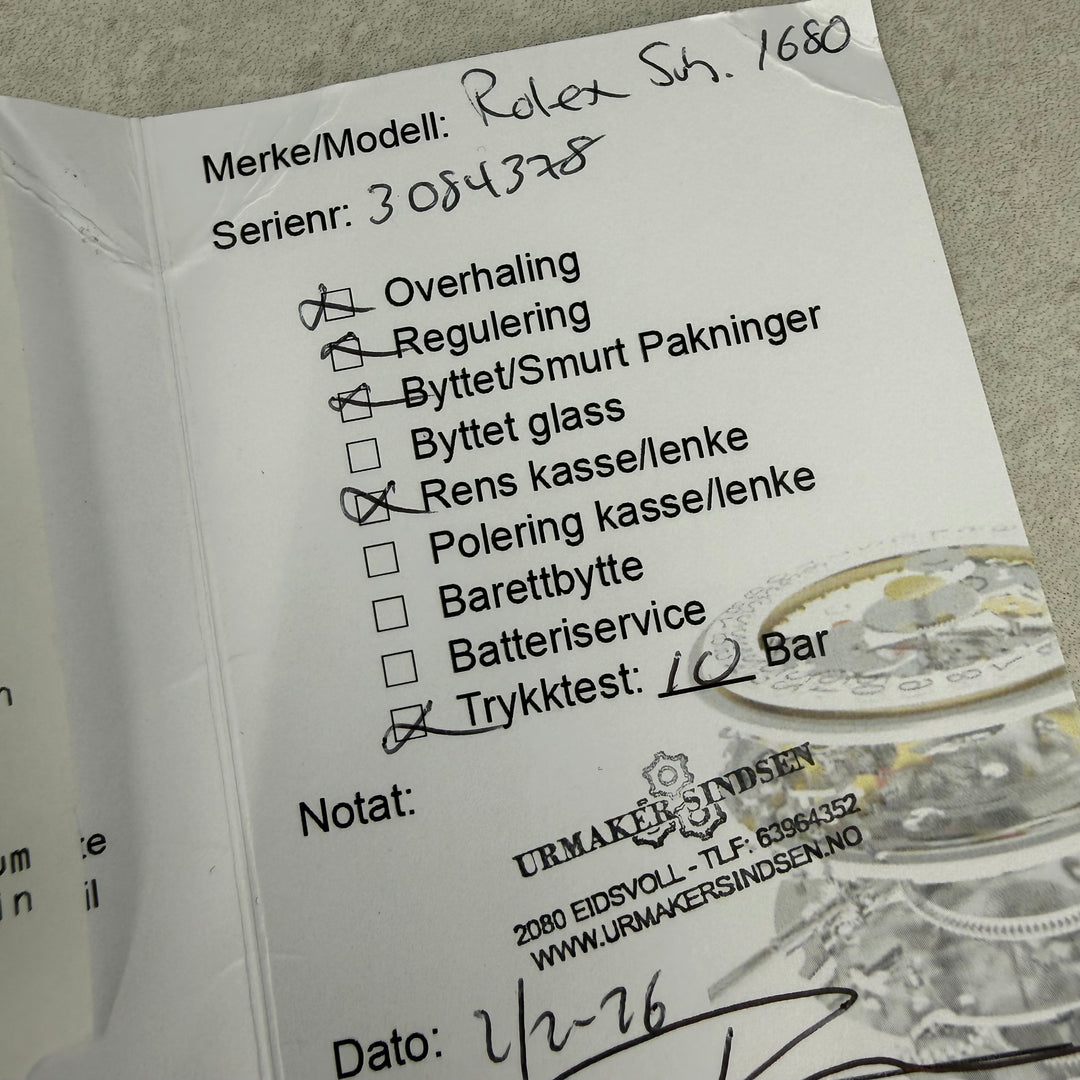 Merke/Modell: Rolex Sub. 1680
Serienr: 3084378
Overhaling
Regulering
Byttet/Smurt Pakninger
Byttet glass
Rens kasse/lenke
Polering kasse/lenke
Barettbytte
Batteriservice
Trykktest: 10 Bar
Notat:
URMAKER SINDSEN
2080 EIDSVOLL - TLF: 63964352
WWW.URMAKERSINDSEN.NO
Dato: 2/2-26